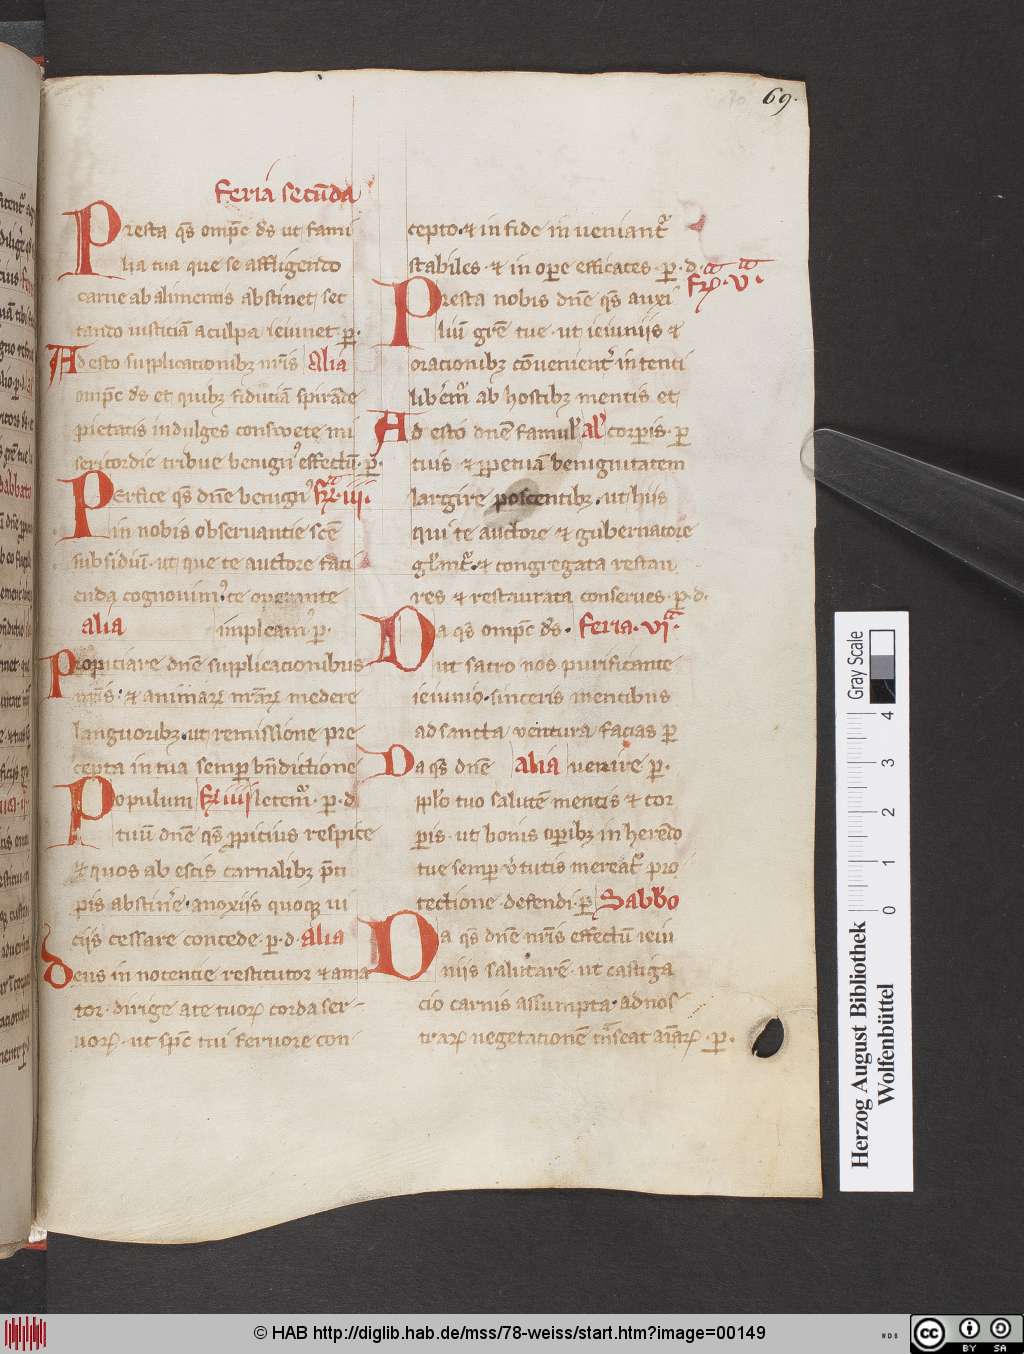 69.
feria secūda
Presta qs ompc ds ut fami
lia tua que se affligendo
carne ab alimentis abstinet sec
tando iusticiā a culpa ieiunet . p̱.
Ad esto supplicationibꝫ nr̄is alia
ompc ds et quibꝫ fiduciā sperāde
pietatis indulges consuete mi
sericordie tribue benignꝰ effectū . p̱.
PErfice qs dne benignꝰ fr̄ . iii.
in nobis obseruantie scē
subsidiū . ut que te auctore faci
enda cognouimꝰ te operante
alia impleamꝰ p̱.
Propiciare dnē supplicacionibus
nr̄is . et animarꝝ nr̄arꝝ medere
languoribꝫ . ut remissione per
cepta in tua semper bn̄dictione
Populum fr̄ iiii letemꝰ . p̱ . d
tuū dnē qs ꝓpicius respice
et quos ab escis carnalibꝫ p̄ci
pis abstinere . a noxiis quoqꝫ ui
ciis cessare concede . p̱ . d . alia
deus in nocentie restitutor et ama
tor . dirige ad te tuorꝝ corda ser-
uorꝝ . ut sp̄c tui feruore con
cepto . et in fide inueniantᷣ
stabiles . et in ope efficates . p̱ . d.
fr̄ . v .
Presta nobis dnē qs auxi
liū grē tue . ut ieiuniis et
oracionibꝫ cōuenientᷣ intenti
liberemᷣ ab hostibꝫ mentis et
Ad esto dnē famul̓ al̓ corpis . p̱
tuis et ꝑpetuā benignitatem
largire poscentibꝫ . ut hiis
qui te auctore et gubernatore
gl̓antᷣ . et congregata restau
res et restaurata conserues . p̱ . d.
Da qs ompc ds . feria . vi .
ut sacro nos purificante
ieiunio . sinceris mentibus
ad sancta uentura facias p̱
Da qs dnē alia uenire p̱.
pplo tuo salutē mentis et cor
pis . ut bonis opibꝫ in herēdo
tue semp uᷣtutis mereatᷣ pro
tectione defendi . p̱ Sabb̓o
Da qs dnē nr̄is effectū ieiu
niis salutarē . ut castiga
cio carnis assumpta . ad nos
trarꝝ uegetationē tn̄seat aīarꝝ . p̱.
Gray Scale
4
3
2
1
0
Herzog August Bibliothek
Wolfenbüttel
© HAB http://diglib.hab.de/mss/78-weiss/start.htm?image=00149
cc
BY SA